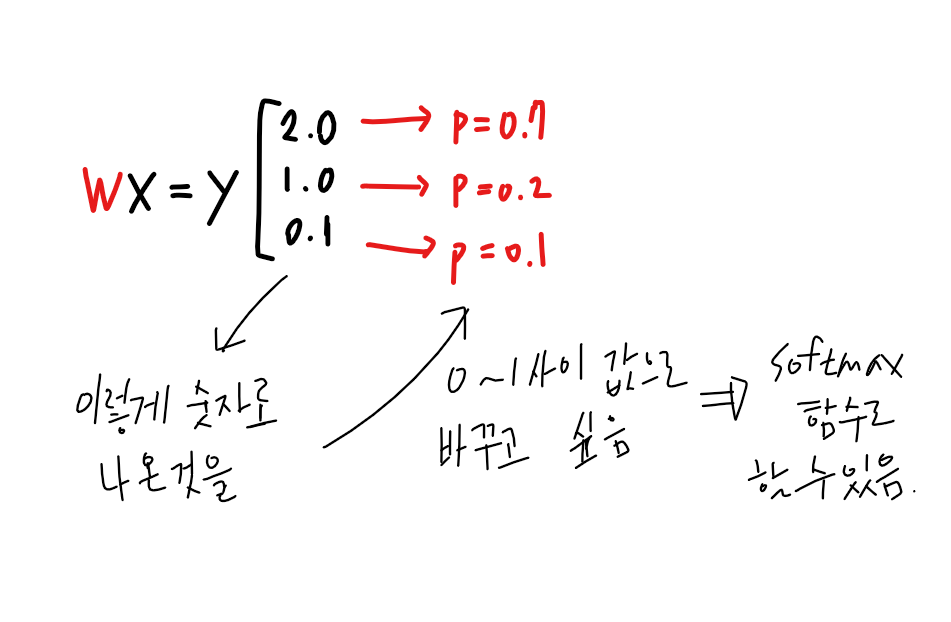 WX = Y
2.0 → p=0.7
1.0 → p=0.2
0.1 → p=0.1
이렇게 숫자로
나온것을
0~1사이 값으로
바꾸고 싶음
⇒ softmax
함수로
할 수 있음.